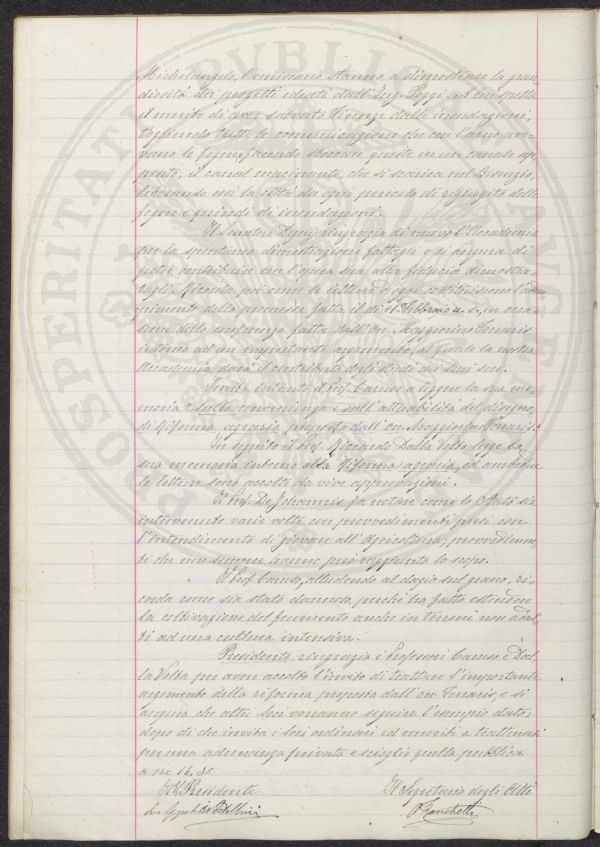 Michelangelo, l'emissario stanno a dimostrare la gran-
diosità dei progetti ideati dall'Ing. Poggi. A lui spetta
il merito di aver salvato Firenze dalle inondazioni,
togliendo tutte le comunicazioni che con l'Arno ave-
vano le fogne, facendo sboccare queste in un canale ap-
posito, il canal macinante, che si scarica nel Bisenzio,
liberando così la città da ogni pericolo di rigurgito delle
fogne e quindi di inondazioni.
Il Senatore ringrazia di nuovo l'Accademia
per la spontanea dimostrazione fattagli e si augura di
poter contribuire con l'opera sua alla fiducia dimostra-
tagli. Ricorda poi come le letture d'oggi costituiscono l'adem-
pimento della promessa fatta il dì Febbraio u. s., in occa-
sione della conferenza fatta dall'On. Maggiorino Ferraris
intorno ad un importante argomento, al quale la nostra
Accademia darà il contributo degli studi dei suoi soci.
Invita intanto il Prof. Caruso a leggere la sua me-
moria "Sulla convenienza e sull'attuabilità del disegno
di Riforma agraria proposta dall'on. Maggiorino Ferraris."
In seguito il Prof. Riccardo Dalla Volta legge la
sua memoria intorno alla Riforma agraria, ed ambedue
le letture sono accolte da vive approvazioni.
Il Prof. De Johannis fa notare come lo Stato sia
intervenuto varie volte con provvedimenti presi con
l'intendimento di giovare all'Agricoltura; provvedimen-
ti che non sempre hanno però raggiunto lo scopo.
Il Prof. Caruso, alludendo al dazio sul grano, ri-
corda come sia stato dannoso, perché ha fatto estendere
la coltivazione del frumento anche in terreni non adat-
ti ad una cultura intensiva.
Presidente, ringrazia i Professori Caruso e Dal-
la Volta per avere accolto l'invito di trattare l'importante
argomento della riforma proposta dall'on. Ferraris, e si
augura che altri soci vorranno seguire l'esempio dato;
dopo di che invita i soci ordinari ed emeriti a trattenersi
per una adunanza privata e scioglie quella pubblica
a ore 16.30
Il Presidente Il Segretario degli Atti
PROSPERITATI PUBLICAE AUGENDAE